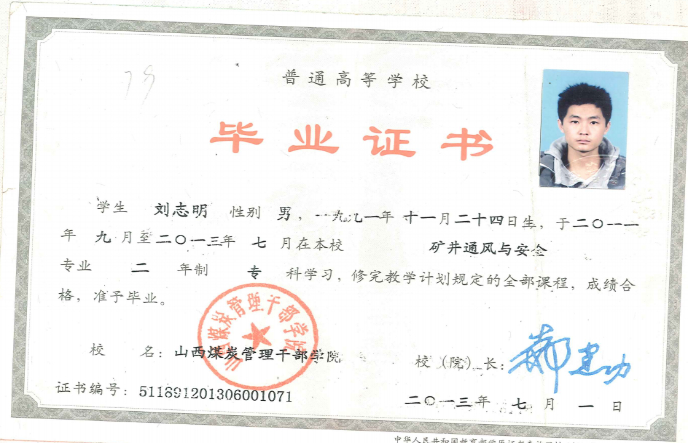 普通高等学校
毕业证书
学生 刘志明 性别 男，一九九一年 十一月二十四日生，于二〇一一
年 九 月至二〇一三年 七 月在本校 矿井通风与安全
专业 二 年制 专 科学习，修完教学计划规定的全部课程，成绩合
格，准予毕业。
山西煤炭管理干部学院
校 名：山西煤炭管理干部学院 校（院）长：郝建功
证书编号：511891201306001071 二〇一三年 七 月 一 日